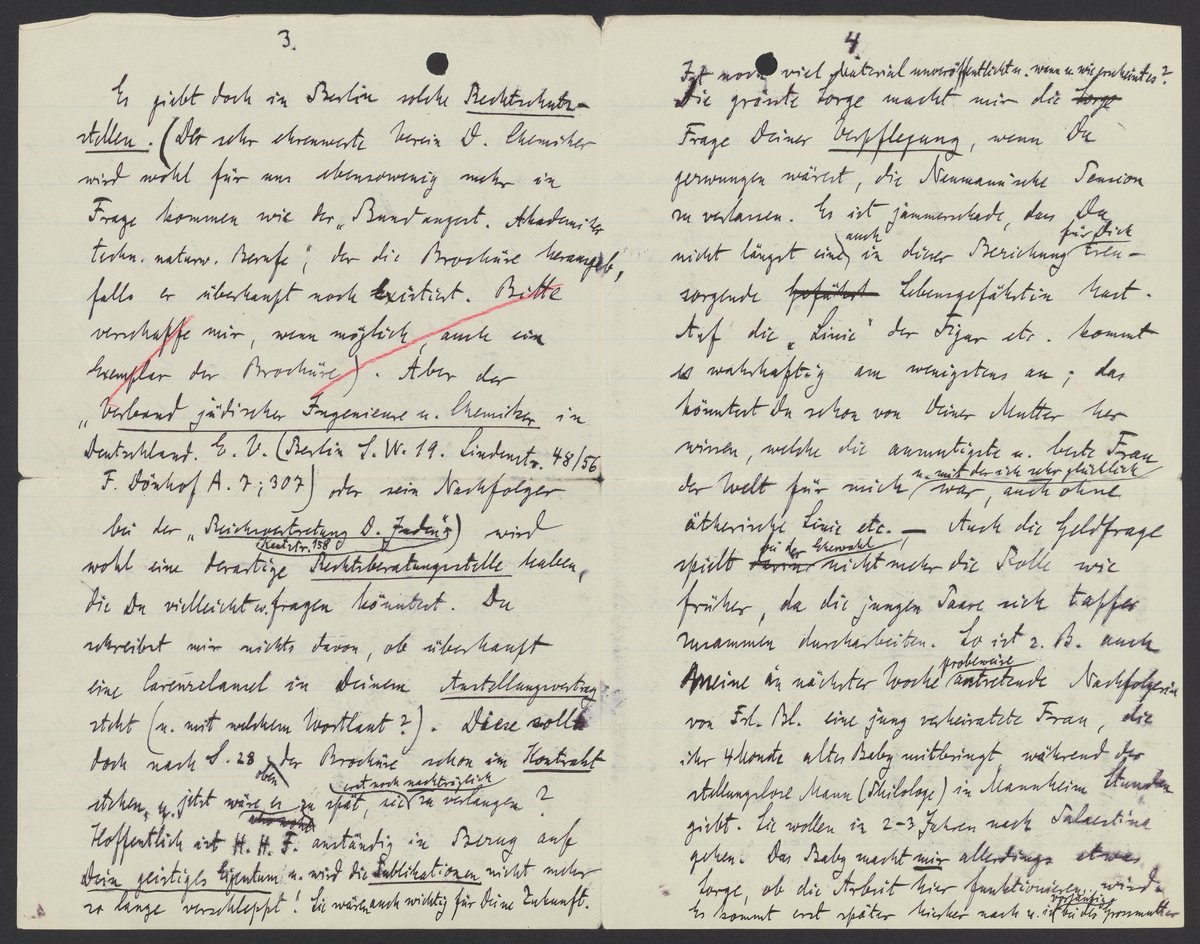 3.
Es giebt doch in Berlin solche Rechtschutz-
stellen. (Der sehr ehrenwerte Verein D. Chemiker
wird wohl für uns ebensowenig mehr in
Frage kommen wie der „Bund angest. Akademiker
techn. naturw. Berufe“, der die Brochüre herausgab,
falls er überhaupt noch existiert. Bitte
verschaffe mir, wenn möglich, auch ein
Exemplar der Brochüre). Aber der
„Verband jüdischer Ingenieure u. Chemiker in
Deutschland. E. V. (Berlin S. W. 19. Lindenstr. 48/56
F. Dönhof A. 7; 307) oder sein Nachfolger
bei der „Reichsvertretung D. Juden“) wird
Kantstr. 158
wohl eine derartige Rechtsberatungsstelle haben,
die Du vielleicht fragen könntest. Du
schreibst mir nichts davon, ob überhaupt
eine Carenzclausel in Deinem Anstellungsvertrag
steht (u. mit welchem Wortlaut?). Diese sollte
doch nach S. 28 der Brochüre schon im Kontrakt
oben erst noch nachträglich
stehen, u. jetzt wäre es zu spät, sie zu verlangen?
Hoffentlich ist H. H. F. anständig in Bezug auf
Dein geistiges Eigentum u. wird die Publikationen nicht mehr
so lange verschleppt! Sie wären auch wichtig für Deine Zukunft.
4.
Ist noch viel Material unveröffentlicht u. wann u. wie erscheint es?
Die grösste Sorge macht mir die Sorge
Frage Deiner Verpflegung, wenn Du
gezwungen wärest, die Neumannsche Pension
zu verlassen. Es ist jammerschade, dass Du
auch für Dich
nicht längst eine in dieser Beziehung treu-
sorgende Gefährt Lebensgefährtin hast.
Auf die „Linie“ der Figur etc. kommt
es wahrhaftig am wenigsten an; das
könntest Du schon von Deiner Mutter her
wissen, welche die anmutigste u. beste Frau
u. mit der ich sehr glücklich
der Welt für mich war, auch ohne
ätherische Linie etc. — Auch die Geldfrage
bei der Ehewahl
spielt darin nicht mehr die Rolle wie
früher, da die jungen Paare sich tapfer
zusammen durcharbeiten. So ist z. B. auch
probeweise
Meine in nächster Woche antretende Nachfolgerin
von Frl. Bl. eine jung verheiratete Frau, die
ihr 4 Monate altes Baby mitbringt, während der
stellungslose Mann (Philologe) in Mannheim Stunden
giebt. Sie wollen in 2-3 Jahren nach Palaestina
gehen. Das Baby macht mir allerdings etwas
Sorge, ob die Arbeit hier funktionieren wird.
vorläufig
Es kommt erst später hierher nach u. ist bei des Grossmutter